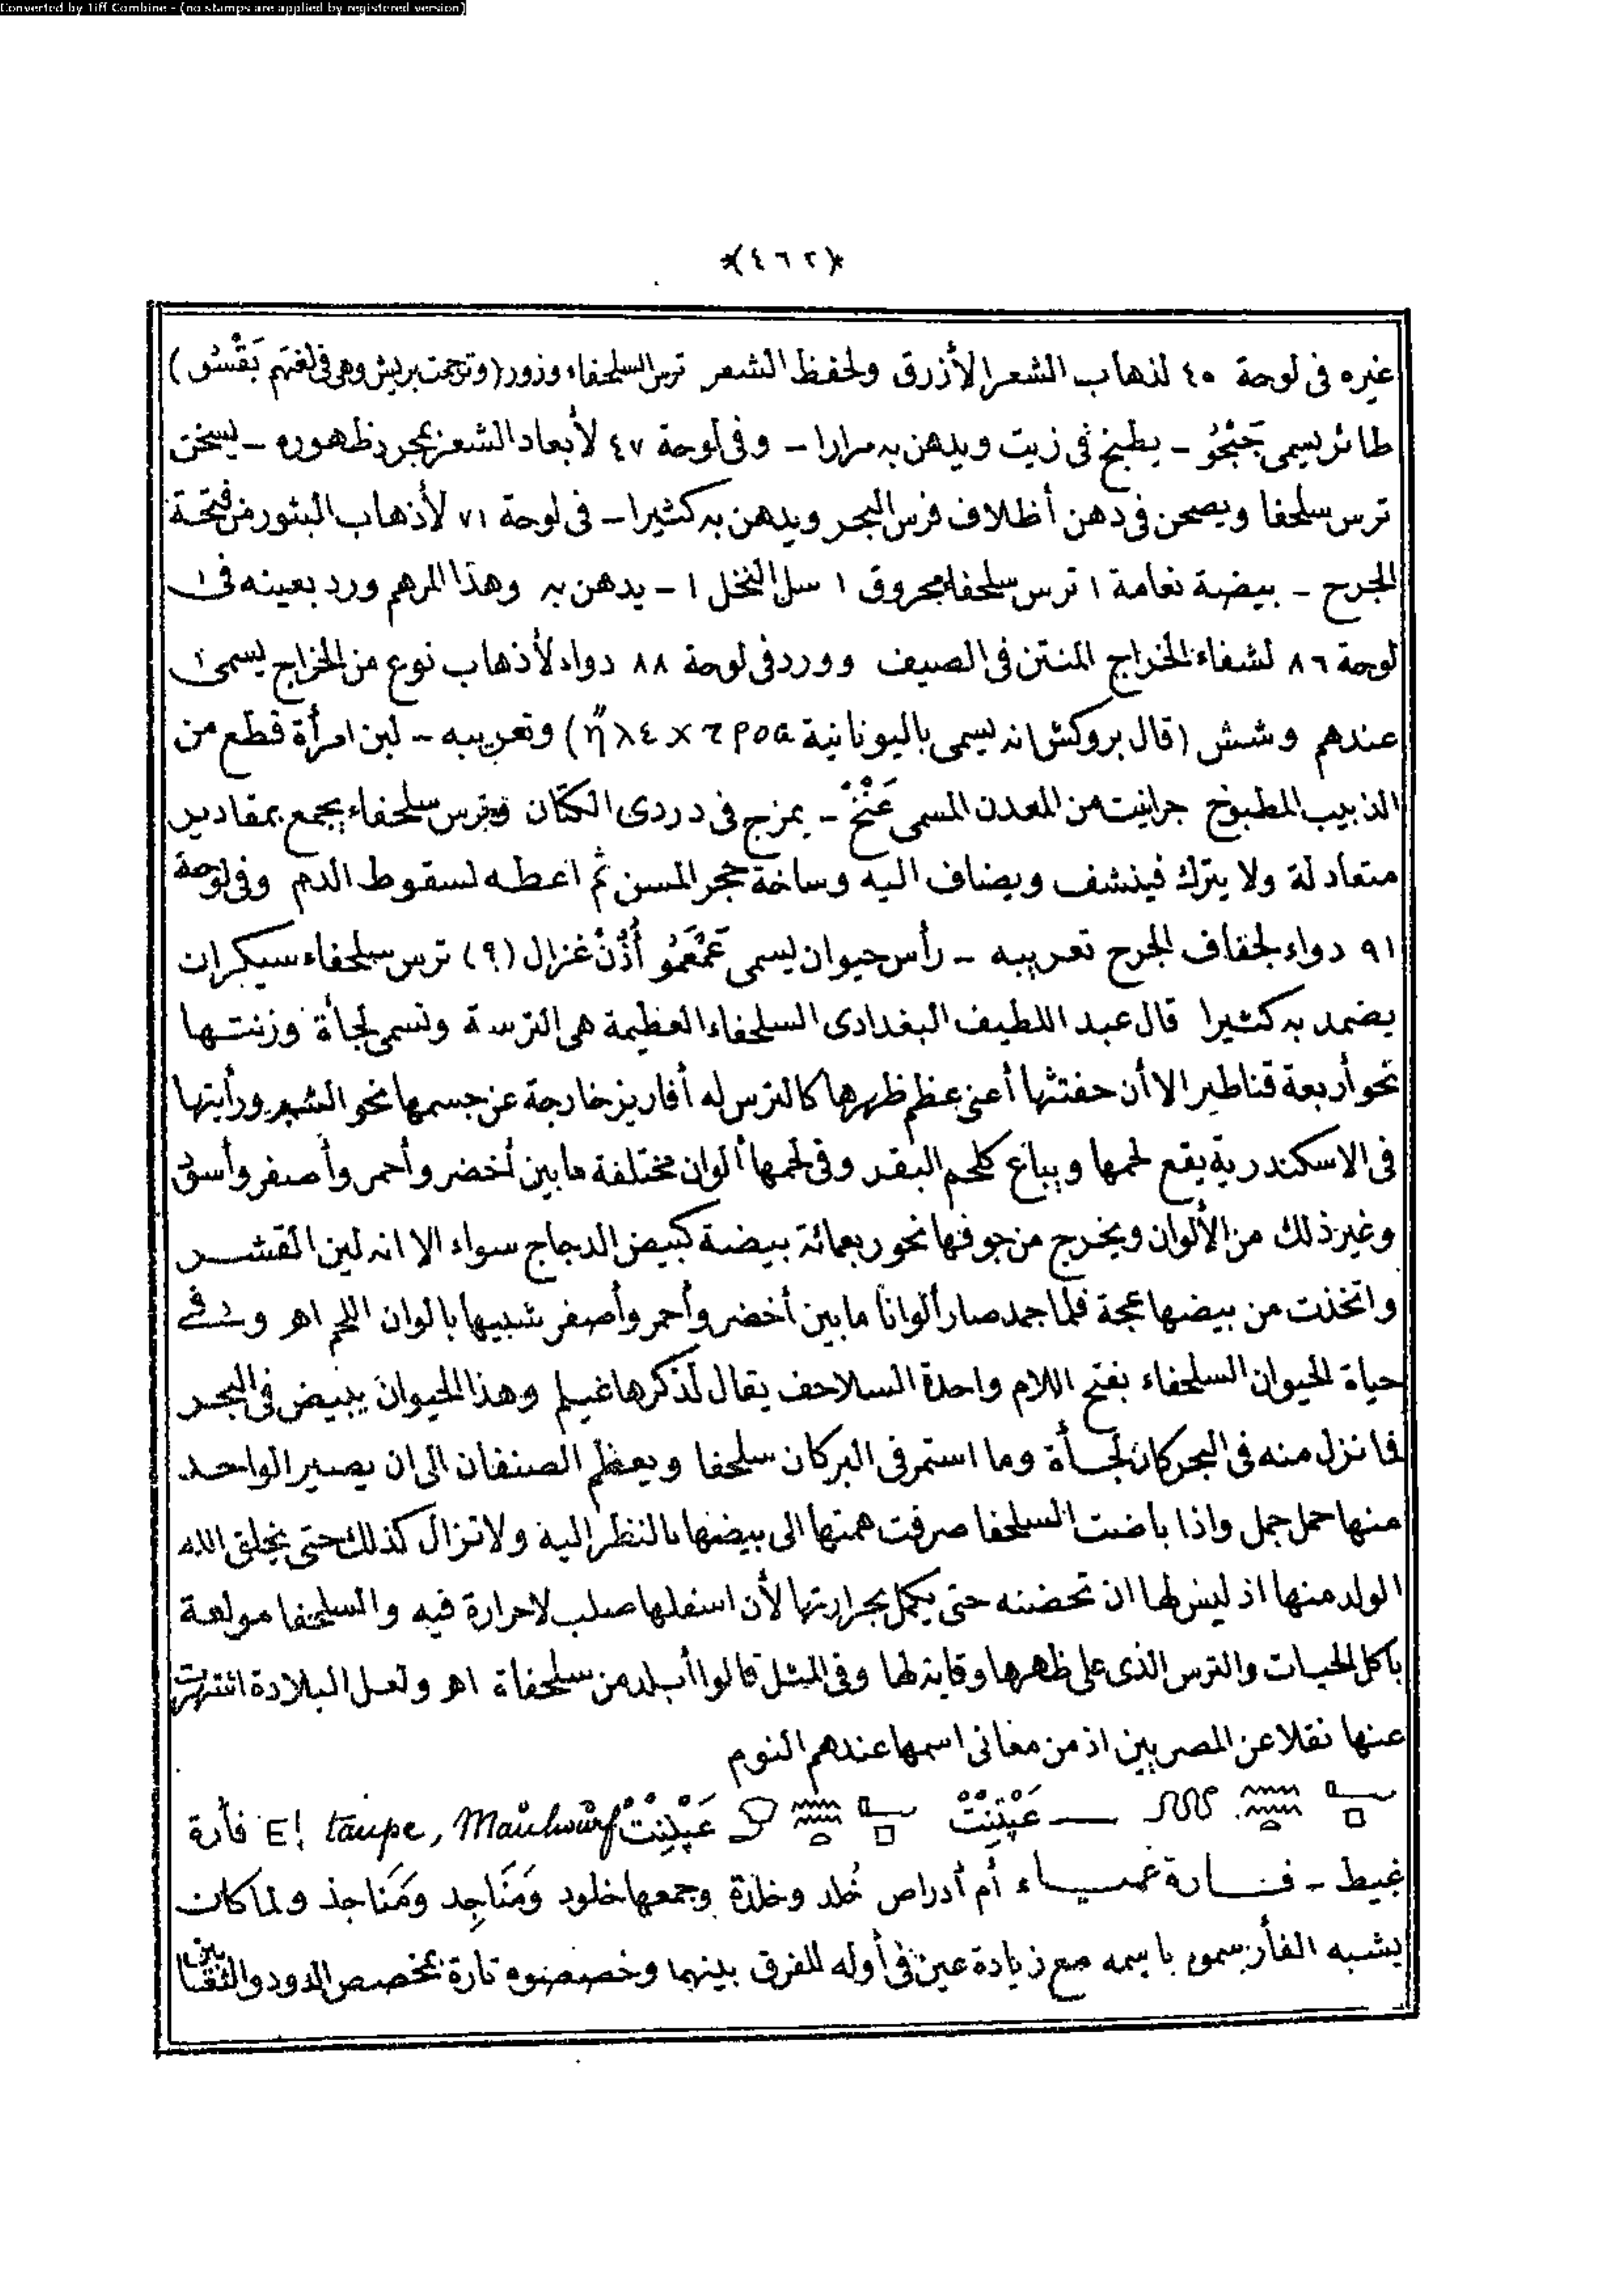 Converted by Tiff Combine - (no stamps are applied by registered version)
*(٤٦٢)*
غيره فى لوحة ٤٥ لذهاب الشعر الأزرق ولحفظ الشعر ترس السلحفاء وزور (وترجمت بريش وهى فى لغتهم بَقْسُق)
طائر يسمى جَبْجُو – يطبخ فى زيت ويدهن به مرارا – وفى لوحة ٤٧ لأبعاد الشعر بمجرد ظهوره – يسخن
ترس سلحفا ويصحن فى دهن أظلاف فرس البحر ويدهن به كثيرا – فى لوحة ٧١ لأذهاب البثور من فتحة
الجرح – بيضة نعامة ١ ترس سلحفاء محروق ١ سل النخل ١ – يدهن به وهذا المرهم ورد بعينه فى
لوحة ٨٦ لشفاء الخراج المنتن فى الصيف وورد فى لوحة ٨٨ دواء لأذهاب نوع من الخراج يسمى
عندهم وشش (قال بروكش انه يسمى باليونانية) وتعريبه – لبن امرأة قطع من
الذبيب المطبوخ جرانيت من المعدن المسمى عَنْخْ – يمزج فى دردى الكتان وترس سلحفاء يجمع بمقادير
متعادلة ولا يترك فينشف ويضاف اليه وساخة حجر المسن ثم اعطه لسقوط الدم وفى لوحة
٩١ دواء لجفاف الجرح تعريبه – رأس حيوان يسمى عَمْعَمُو أُذُنْ غزال (؟) ترس سلحفاء سيكران
يضمد به كثيرا قال عبد اللطيف البغدادى السلحفاء العظيمة هى الترسة وتسمى لجأة وزنتها
نحو أربعة قناطير الا أن حفتثها أعنى عظم ظهرها كالترس له أفاريز خارجة عن جسمها نحو الشبر ورأيتها
فى الاسكندرية يقع لحمها ويباع كلحم البقر وفى لحمها ألوان مختلفة ما بين أخضر وأحمر وأصفر وأسود
وغير ذلك من الألوان ويخرج من جوفها نحو ربعمائة بيضة كبيض الدجاج سواء الا انه لين القشر
واتخذت من بيضها عجة فلما جمد صار ألوانا ما بين أخضر وأحمر وأصفر شبيها بالوان اللحم اهـ وفى
حياة الحيوان السلحفاء بفتح اللام واحدة السلاحف يقال لذكرها غيلم وهذا الحيوان يبيض فى البحر
فما نزل منه فى البحر كان لجأة وما استمر فى البر كان سلحفا ويعظم الصنفان الى ان يصير الواحد
منها حمل جمل واذا باضت السلحفا صرفت همتها الى بيضها بالنظر اليه ولا تزال كذلك حتى يخلق الله
الولد منها اذ ليس لها ان تحضنه حتى يكمل بحرارتها لأن اسفلها صلب لا حرارة فيه والسلحفا مولعة
بأكل الحيات والترس الذى على ظهرها وقاية لها وفى المثل قالوا أبلد من سلحفاة اهـ ولعل البلادة اشتهرت
عنها نقلا عن المصريين اذ من معانى اسمها عندهم النوم
— E! taupe, Maulwurf فأرة
غيط – فارة عمياء أم أدراص خُلد وخلدة وجمعها خلود ومَنَاجِد ومَنَاجذ ولما كان
يشبه الفأر سموه باسمه مع زيادة عين فى أوله للفرق بينهما وخصصوه تارة بمخصص الدود والثعابين